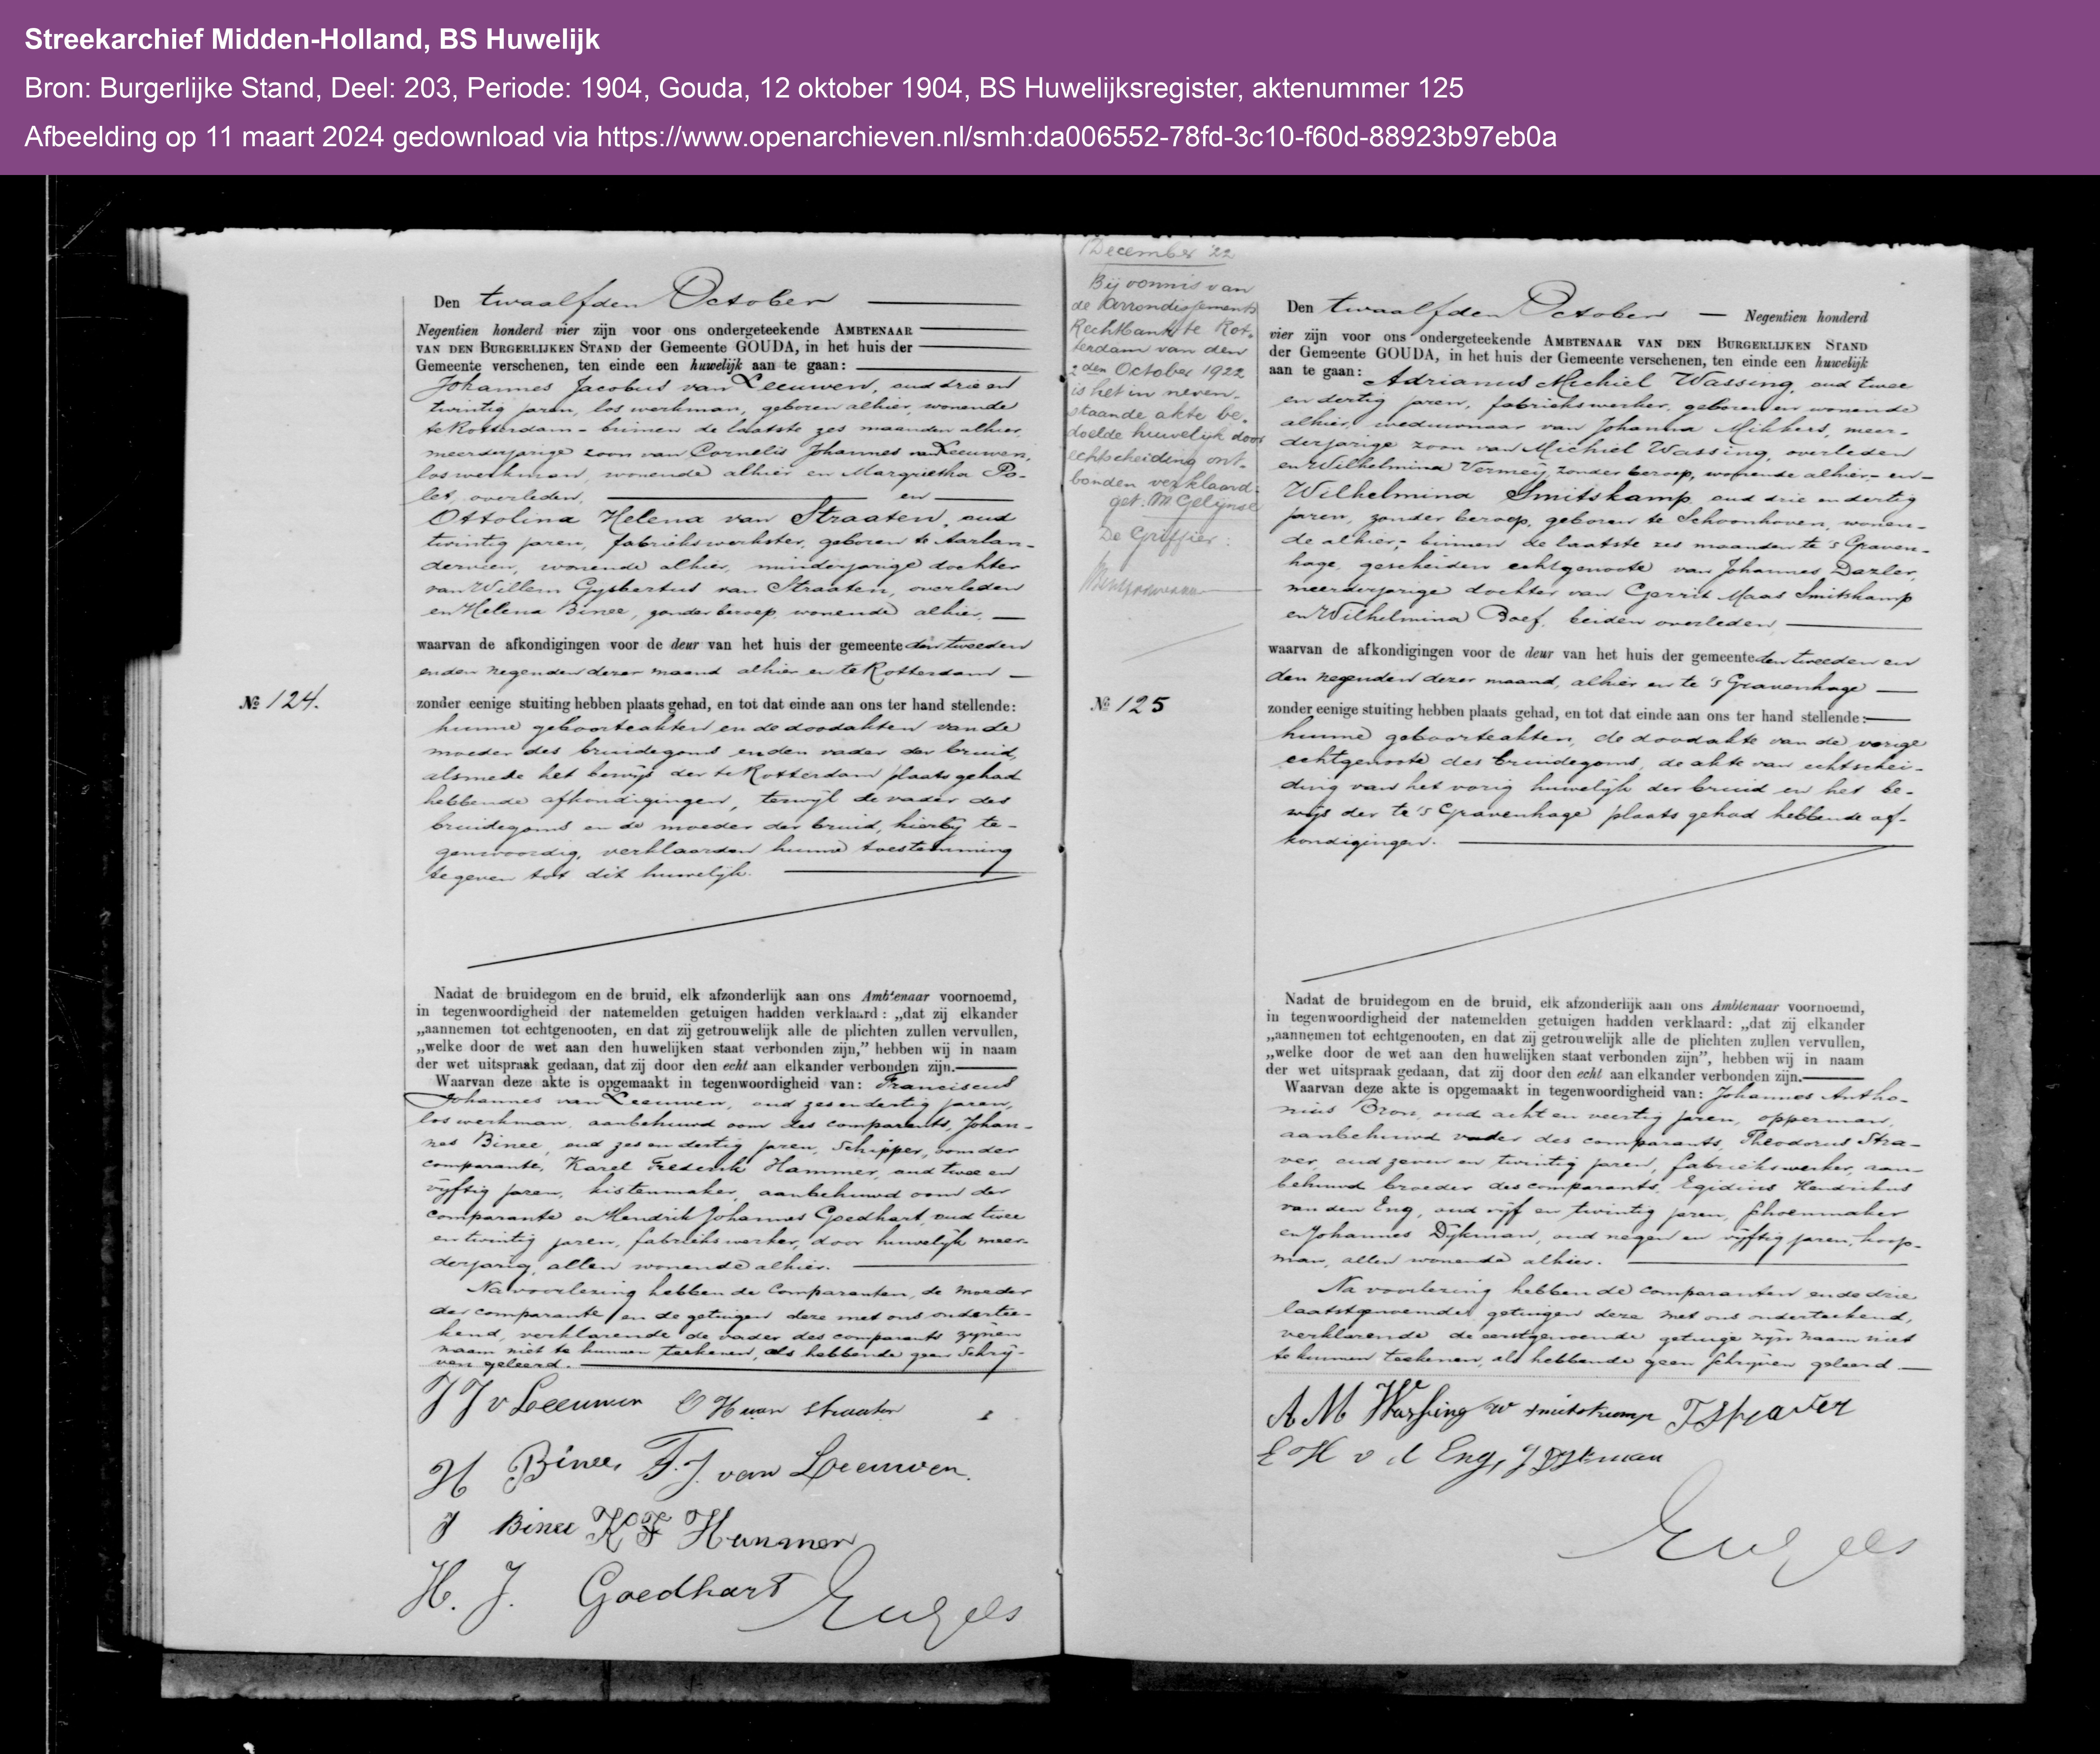 Streekarchief Midden-Holland, BS Huwelijk
Bron: Burgerlijke Stand, Deel: 203, Periode: 1904, Gouda, 12 oktober 1904, BS Huwelijksregister, aktenummer 125
Afbeelding op 11 maart 2024 gedownload via https://www.openarchieven.nl/smh:da006552-78fd-3c10-f60d-88923b97eb0a
Den twaalfden October
Negentien honderd vier zijn voor ons ondergeteekende AMBTENAAR
VAN DEN BURGERLIJKEN STAND der Gemeente GOUDA, in het huis der
Gemeente verschenen, ten einde een huwelijk aan te gaan:
Johannes Jacobus van Leeuwen, oud drie en
twintig jaren, los werkman, geboren alhier, wonende
te Rotterdam - binnen de laatste zes maanden alhier,
meerderjarige zoon van Cornelis Johannes van Leeuwen,
los werkman, wonende alhier en Margrietha Po-
let, overleden, en
Ottolina Helena van Straaten, oud
twintig jaren, fabriekswerkster, geboren te Aarlan-
derveen, wonende alhier, minderjarige dochter
van Willem Gysbertus van Straaten, overleden
en Helena Binee, zonder beroep, wonende alhier,
waarvan de afkondigingen voor de deur van het huis der gemeente den tweeden
en den negenden dezer maand alhier en te Rotterdam
No 124.
zonder eenige stuiting hebben plaats gehad, en tot dat einde aan ons ter hand stellende:
hunne geboorteakten en de doodakten van de
moeder des bruidegoms en den vader der bruid,
alsmede het bewijs der te Rotterdam plaats gehad
hebbende afkondigingen, terwijl de vader des
bruidegoms en de moeder der bruid, hierbij te-
genwoordig, verklaarden hunne toestemming
te geven tot dit huwelijk.
Nadat de bruidegom en de bruid, elk afzonderlijk aan ons Ambtenaar voornoemd,
in tegenwoordigheid der natemelden getuigen hadden verklaard: „dat zij elkander
„aannemen tot echtgenooten, en dat zij getrouwelijk alle de plichten zullen vervullen,
„welke door de wet aan den huwelijken staat verbonden zijn,” hebben wij in naam
der wet uitspraak gedaan, dat zij door den echt aan elkander verbonden zijn.
Waarvan deze akte is opgemaakt in tegenwoordigheid van: Franciscus
Johannes van Leeuwen, oud zes en dertig jaren,
los werkman, aanbehuwd oom des comparants, Johan-
nes Binee, oud zes en dertig jaren, Schipper, oom der
comparante, Karel Frederik Hammer, oud twee en
vijftig jaren, kistenmaker, aanbehuwd oom der
comparante en Hendrik Johannes Goedhart, oud twee
en twintig jaren, fabriekswerker, door huwelijk meer-
derjarig, allen wonende alhier.
Na voorlezing hebben de Comparanten, de moeder
der comparante en de getuigen deze met ons ondertee-
kend, verklarende de vader des comparants zijnen
naam niet te kunnen teekenen, als hebbende geen Schrij-
ven geleerd.
J J v Leeuwen O H van Straaten
H Binee F. J. van Leeuwen.
J Binee K F Hammer
H. J. Goedhart Engels
December '22
Bij vonnis van
de Arrondissements
Rechtbank te Rot-
terdam van den
2den October 1922
is het in neven-
staande akte be-
doelde huwelijk door
echtscheiding ont-
bonden verklaard.
get. M Gelijnse
De Griffier:
Den twaalfden October Negentien honderd
vier zijn voor ons ondergeteekende AMBTENAAR VAN DEN BURGERLIJKEN STAND
der Gemeente GOUDA, in het huis der Gemeente verschenen, ten einde een huwelijk
aan te gaan: Adrianus Michiel Wassing, oud twee
en dertig jaren, fabriekswerker, geboren en wonende
alhier, weduwnaar van Johanna Mikkers, meer-
derjarige zoon van Michiel Wassing, overleden
en Wilhelmina Vermeij, zonder beroep, wonende alhier, en
Wilhelmina Smitskamp, oud drie en dertig
jaren, zonder beroep, geboren te Schoonhoven, wonen-
de alhier, binnen de laatste zes maanden te 's Graven-
hage, gescheiden echtgenoote van Johannes Dazler,
meerderjarige dochter van Gerrit Maas Smitskamp
en Wilhelmina Boef, beiden overleden,
waarvan de afkondigingen voor de deur van het huis der gemeente den tweeden en
den negenden dezer maand, alhier en te 's Gravenhage
No 125
zonder eenige stuiting hebben plaats gehad, en tot dat einde aan ons ter hand stellende:
hunne geboorteakten, de doodakte van de vorige
echtgenoote des bruidegoms, de akte van echtschei-
ding van het vorig huwelijk der bruid en het be-
wijs der te 's Gravenhage plaats gehad hebbende af-
kondigingen.
Nadat de bruidegom en de bruid, elk afzonderlijk aan ons Ambtenaar voornoemd,
in tegenwoordigheid der natemelden getuigen hadden verklaard: „dat zij elkander
„aannemen tot echtgenooten, en dat zij getrouwelijk alle de plichten zullen vervullen,
„welke door de wet aan den huwelijken staat verbonden zijn”, hebben wij in naam
der wet uitspraak gedaan, dat zij door den echt aan elkander verbonden zijn.
Waarvan deze akte is opgemaakt in tegenwoordigheid van: Johannes Antho-
nius Bron, oud acht en veertig jaren, opperman,
aanbehuwd vader des comparants, Theodorus Stra-
ver, oud zeven en twintig jaren, fabriekswerker, aan-
behuwd broeder des comparants, Egidius Hendrikus
van den Eng, oud vijf en twintig jaren, Schoenmaker
en Johannes Dijkman, oud negen en vijftig jaren, koop-
man, allen wonende alhier.
Na voorlezing hebben de comparanten en de drie
laatstgenoemde getuigen deze met ons onderteekend,
verklarende de eerstgenoemde getuige zijn naam niet
te kunnen teekenen, als hebbende geen Schrijven geleerd
A M Wassing W Smitskamp T Straver
E H v d Eng, J Dijkman
Engels